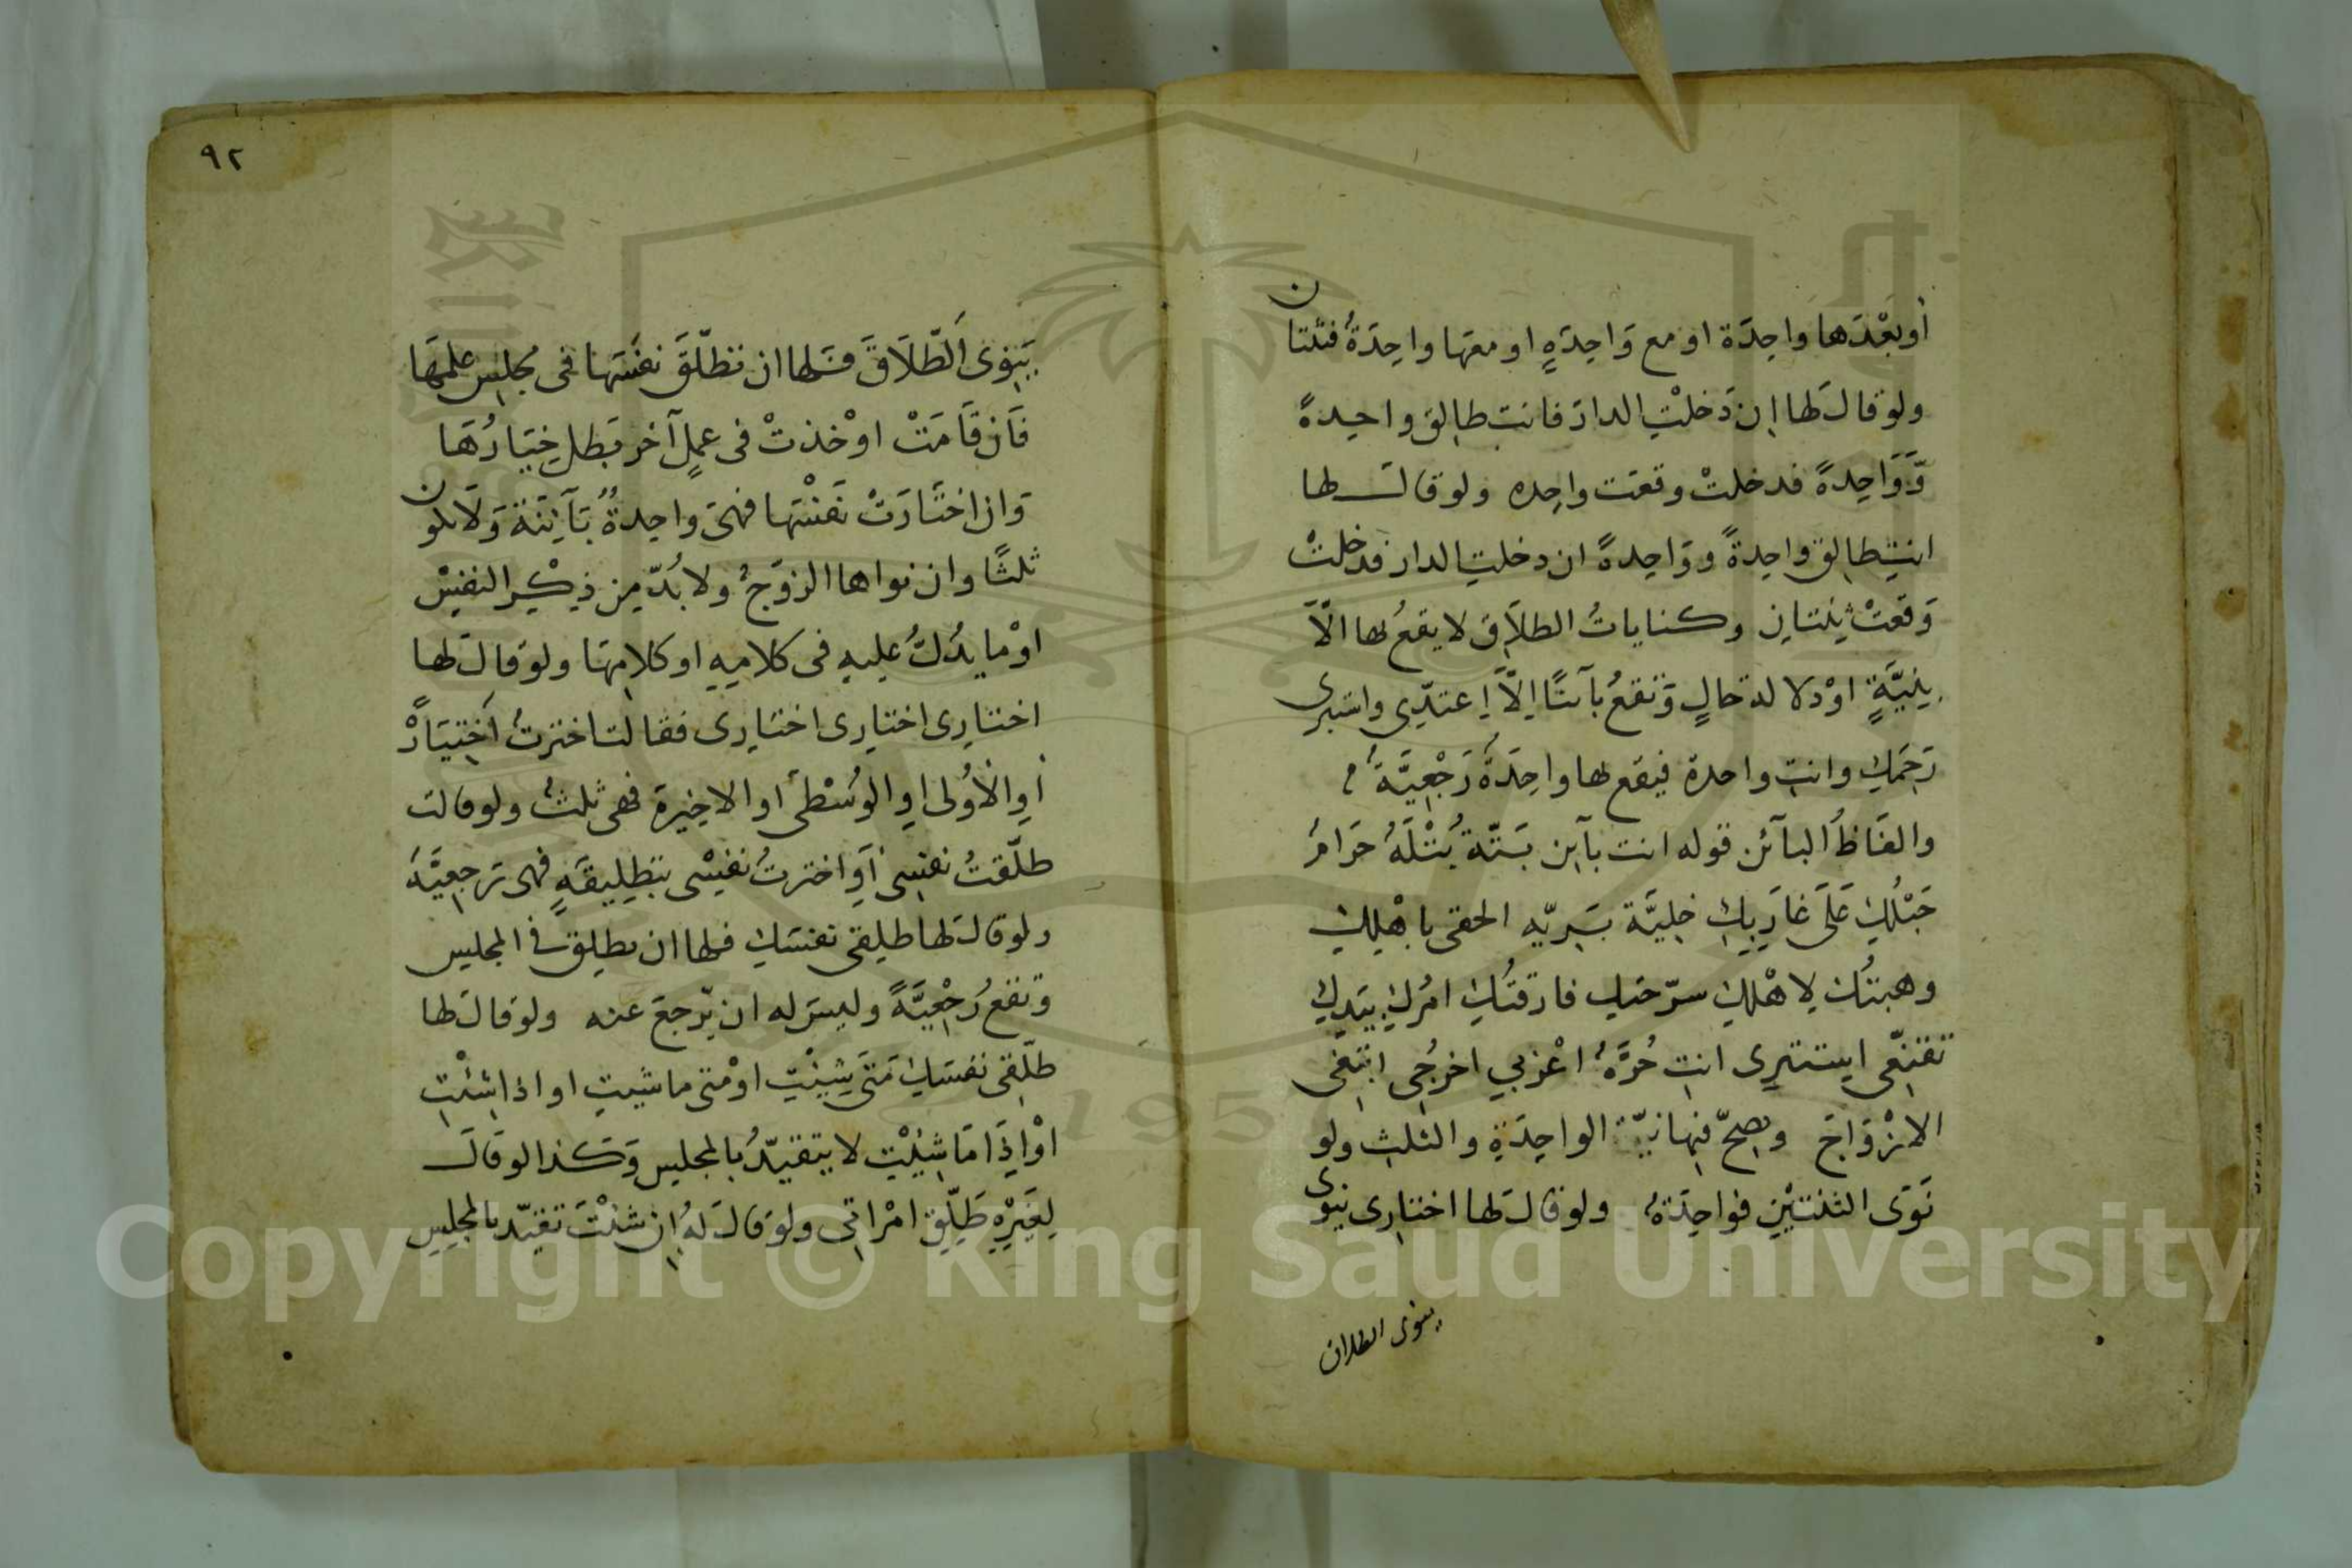 أو بعْدَها واحِدَة او مع وَاحِدَةٍ او معَها واحِدَةٌ فثنتان
ولو قال لَها اِن دَخلْتِ الدارَ فانتِ طالِق واحِدةً
وَّوَاحِدةً فدخلتْ وقعَت واحِده ولو قال لها
انتِ طالِق واحِدةً ووَاحِدةً ان دخلتِ الدار فدخلتْ
وَقعَتْ ثِنتانِ وكناياتُ الطلاَقِ لا يقعُ بها الّاَ
بِنِيَّةٍ اوْ دلالة حالٍ وَتقعُ بآئنًا اِلّاَ اِعتدّى واستبرى
رَحِمَكِ وانتِ واحدة فيقع بها واحِدَةٌ رَجْعِيَّةٌ
والفَاظُ البآئن قوله انت بآئن بَتّة بَتْلَةٌ حَرَامٌ
حَبْلُكِ عَلَى غارِبِكِ خلِيَّة بَرِيّه الحقى باهْلِكِ
وهبتُكِ لاهْلكِ سرّحتكِ فارقتُكِ امرُكِ بيَدِكِ
تقنّعى اِستترِى انتِ حُرَّةٌ اعْزبي اخرُجِى ابتغى
الازْوَاجَ ويصِحّ فيها نيّة الواحِدَةِ والثلثِ ولو
نَوَى الثنتيْنِ فواحِدَةٌ ولو قال لَها اختارِى ينوى
ينوى الطلاق
٩٢
يَنوِى الطّلَاقَ فلها ان تطلّقَ نفسَها فى مجلِس علمِهَا
فَاِن قَامَتْ اوْ خذتْ فى عملٍ آخر بَطل خِيَارُهَا
وَان اختَارَتْ نَفْسَها فهىَ واحِدةٌ بَآئِنَة وَلَا تكون
ثلثًا وان نواها الزوَجُ ولا بُدّ مِن ذِكْرِ النفِسْ
اوْ ما يدُلُّ عليهِ فى كلامِهِ او كلامِهَا ولو قال لها
اختارِى اختارِى اختارِى فقالت اخترتُ اختِيَارًا
أوِ الأُولى اوِ الوُسْطى أو الاخِيرة فهى ثلثٌ ولو قالت
طلّقتُ نفسِى أو اخترتُ نفسِْى بتطِليقَةٍ فهى رَجعِيَّة
ولو قال لَها طلقِى نفسَكِ فلها ان تطلِق فى المجلِس
وَتقع رَجْعِيَّةً وليسَ له ان يرجعَ عنه ولو قال لَها
طلّقِى نفسَكِ مَتَى شِئتِ اوْ متى ما شِئتِ او اذا شِئْتِ
اوْ اِذَا مَا شِئْتِ لا يتقيّدُ بالمجلِس وَكذا لو قال
لِغَيْرِهِ طَلِّقِ امْرَاتى ولو قال لَهُ اِن شئْتَ تقيّد بالمجلِس
Copyright © King Saud University
1957